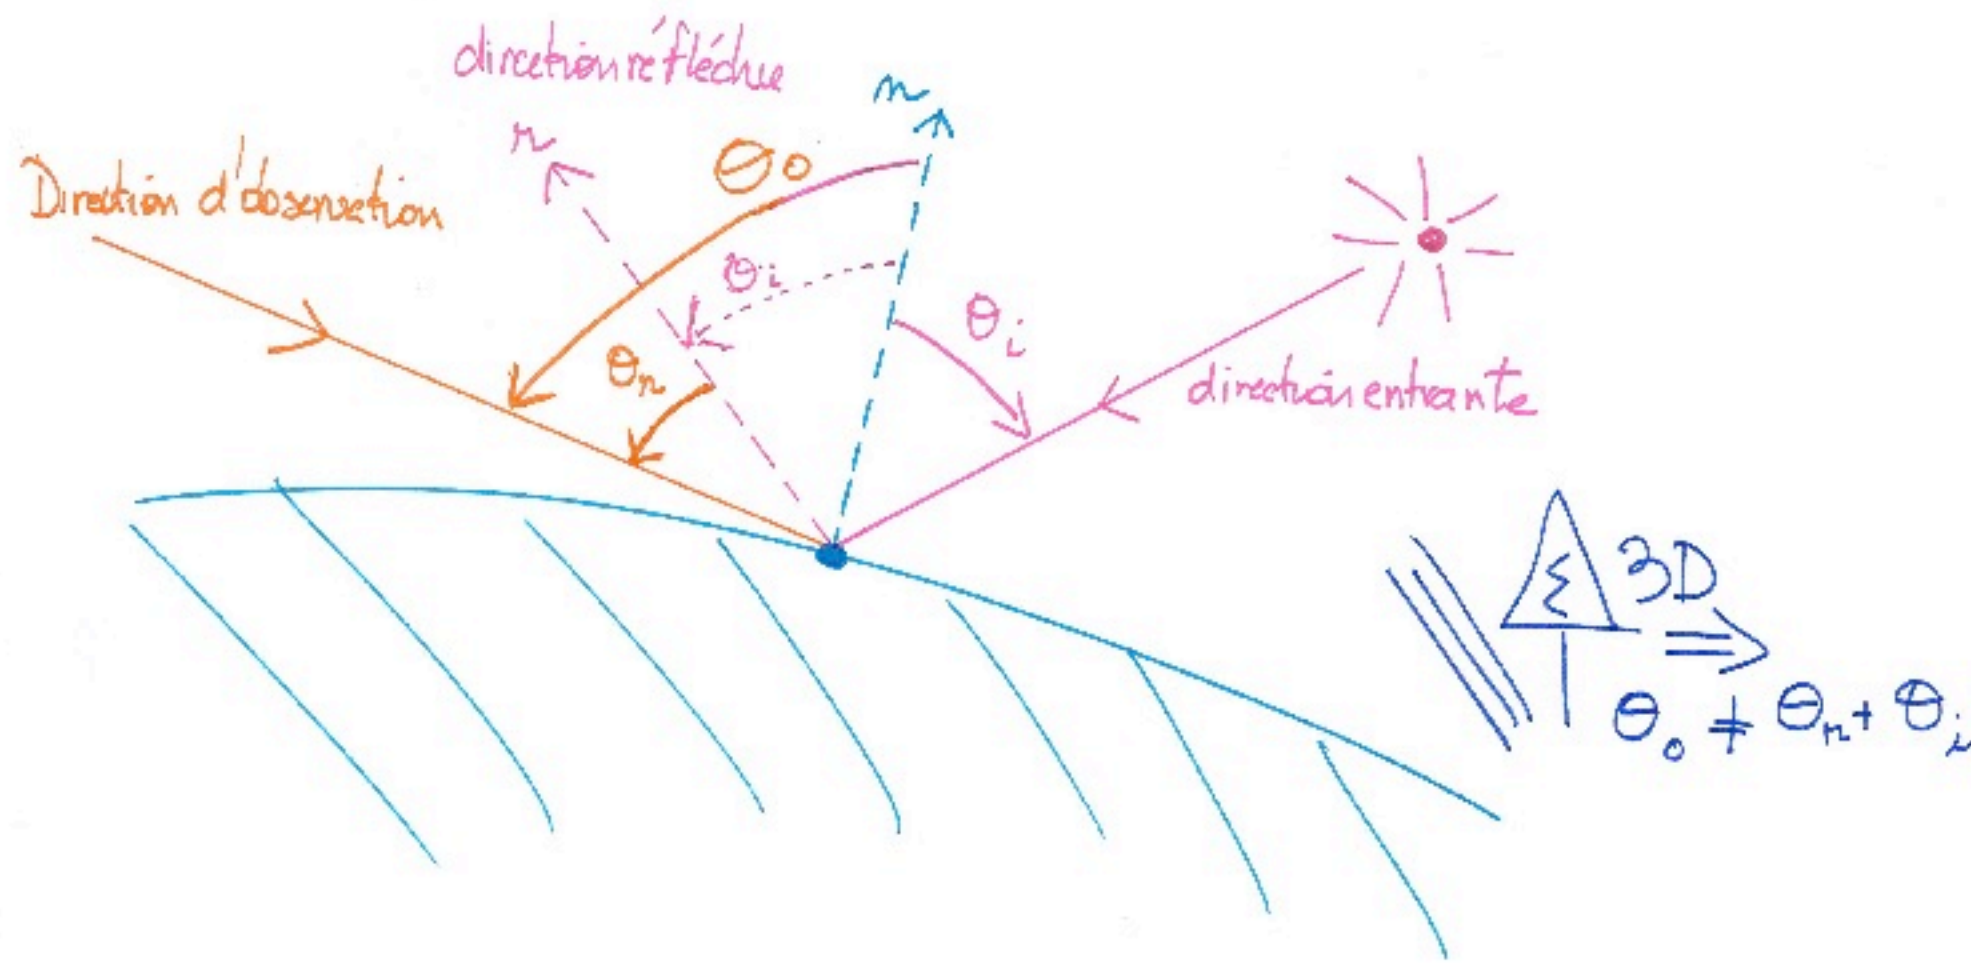 direction réfléchie
n
r
θo
Direction d'observation
θi
θi
θr
direction entrante
3D
⇒
θo ≠ θr + θi